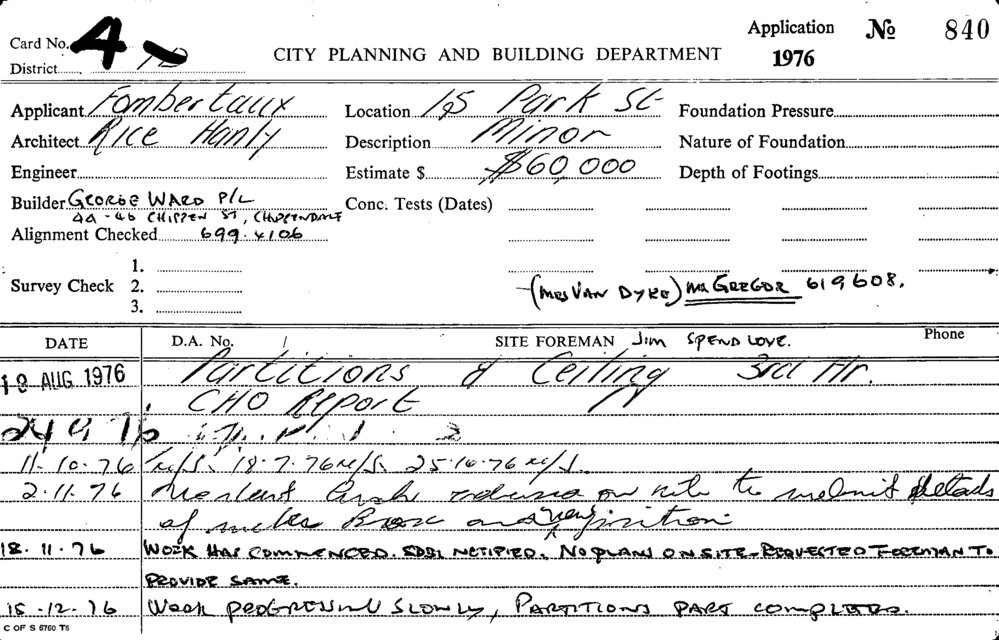 Card No. 4 Application No 840
District 1976
CITY PLANNING AND BUILDING DEPARTMENT
Applicant Fombertaux Location 195 Park St Foundation Pressure
Architect Rice Hanly Description Minor Nature of Foundation
Engineer Estimate $ $60,000 Depth of Footings
Builder GEORGE WARD P/L Conc. Tests (Dates)
44-46 CHIPPEN ST, CHIPPENDALE
Alignment Checked 699.4106
1.
Survey Check 2. (MES VAN DYKE) MR GREGOR 619608.
3.
DATE D.A. No. SITE FOREMAN JIM SPENDLOVE. Phone
AUG 1976 Partitions & Ceiling 3rd Flr.
CHO Report N
24 9 76
11.10.76 25.10.76
2.11.76 on site to submit details
of and new position
18.11.76 WORK HAS COMMENCED. NOTIFIED. NO PLANS ON SITE-REQUESTED FOREMAN TO
PROVIDE SAME.
15.12.76 WORK PROGRESSING SLOWLY, PARTITIONS PART COMPLETED.
C OF S 6760 T6